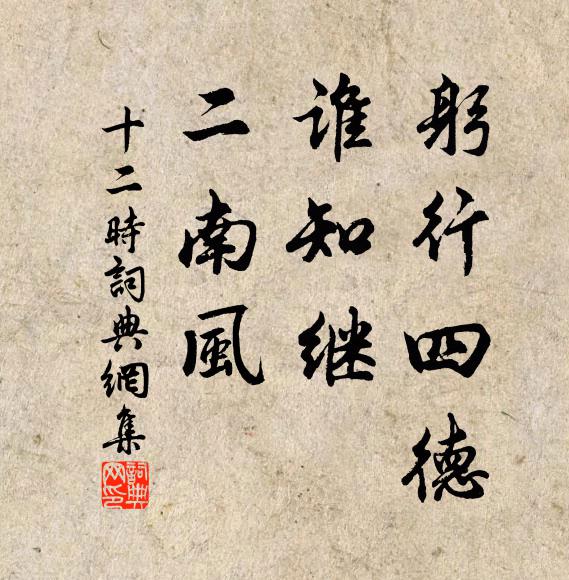 躬行四德
谁知继
二南風
十二時詞典網集
詞典网印